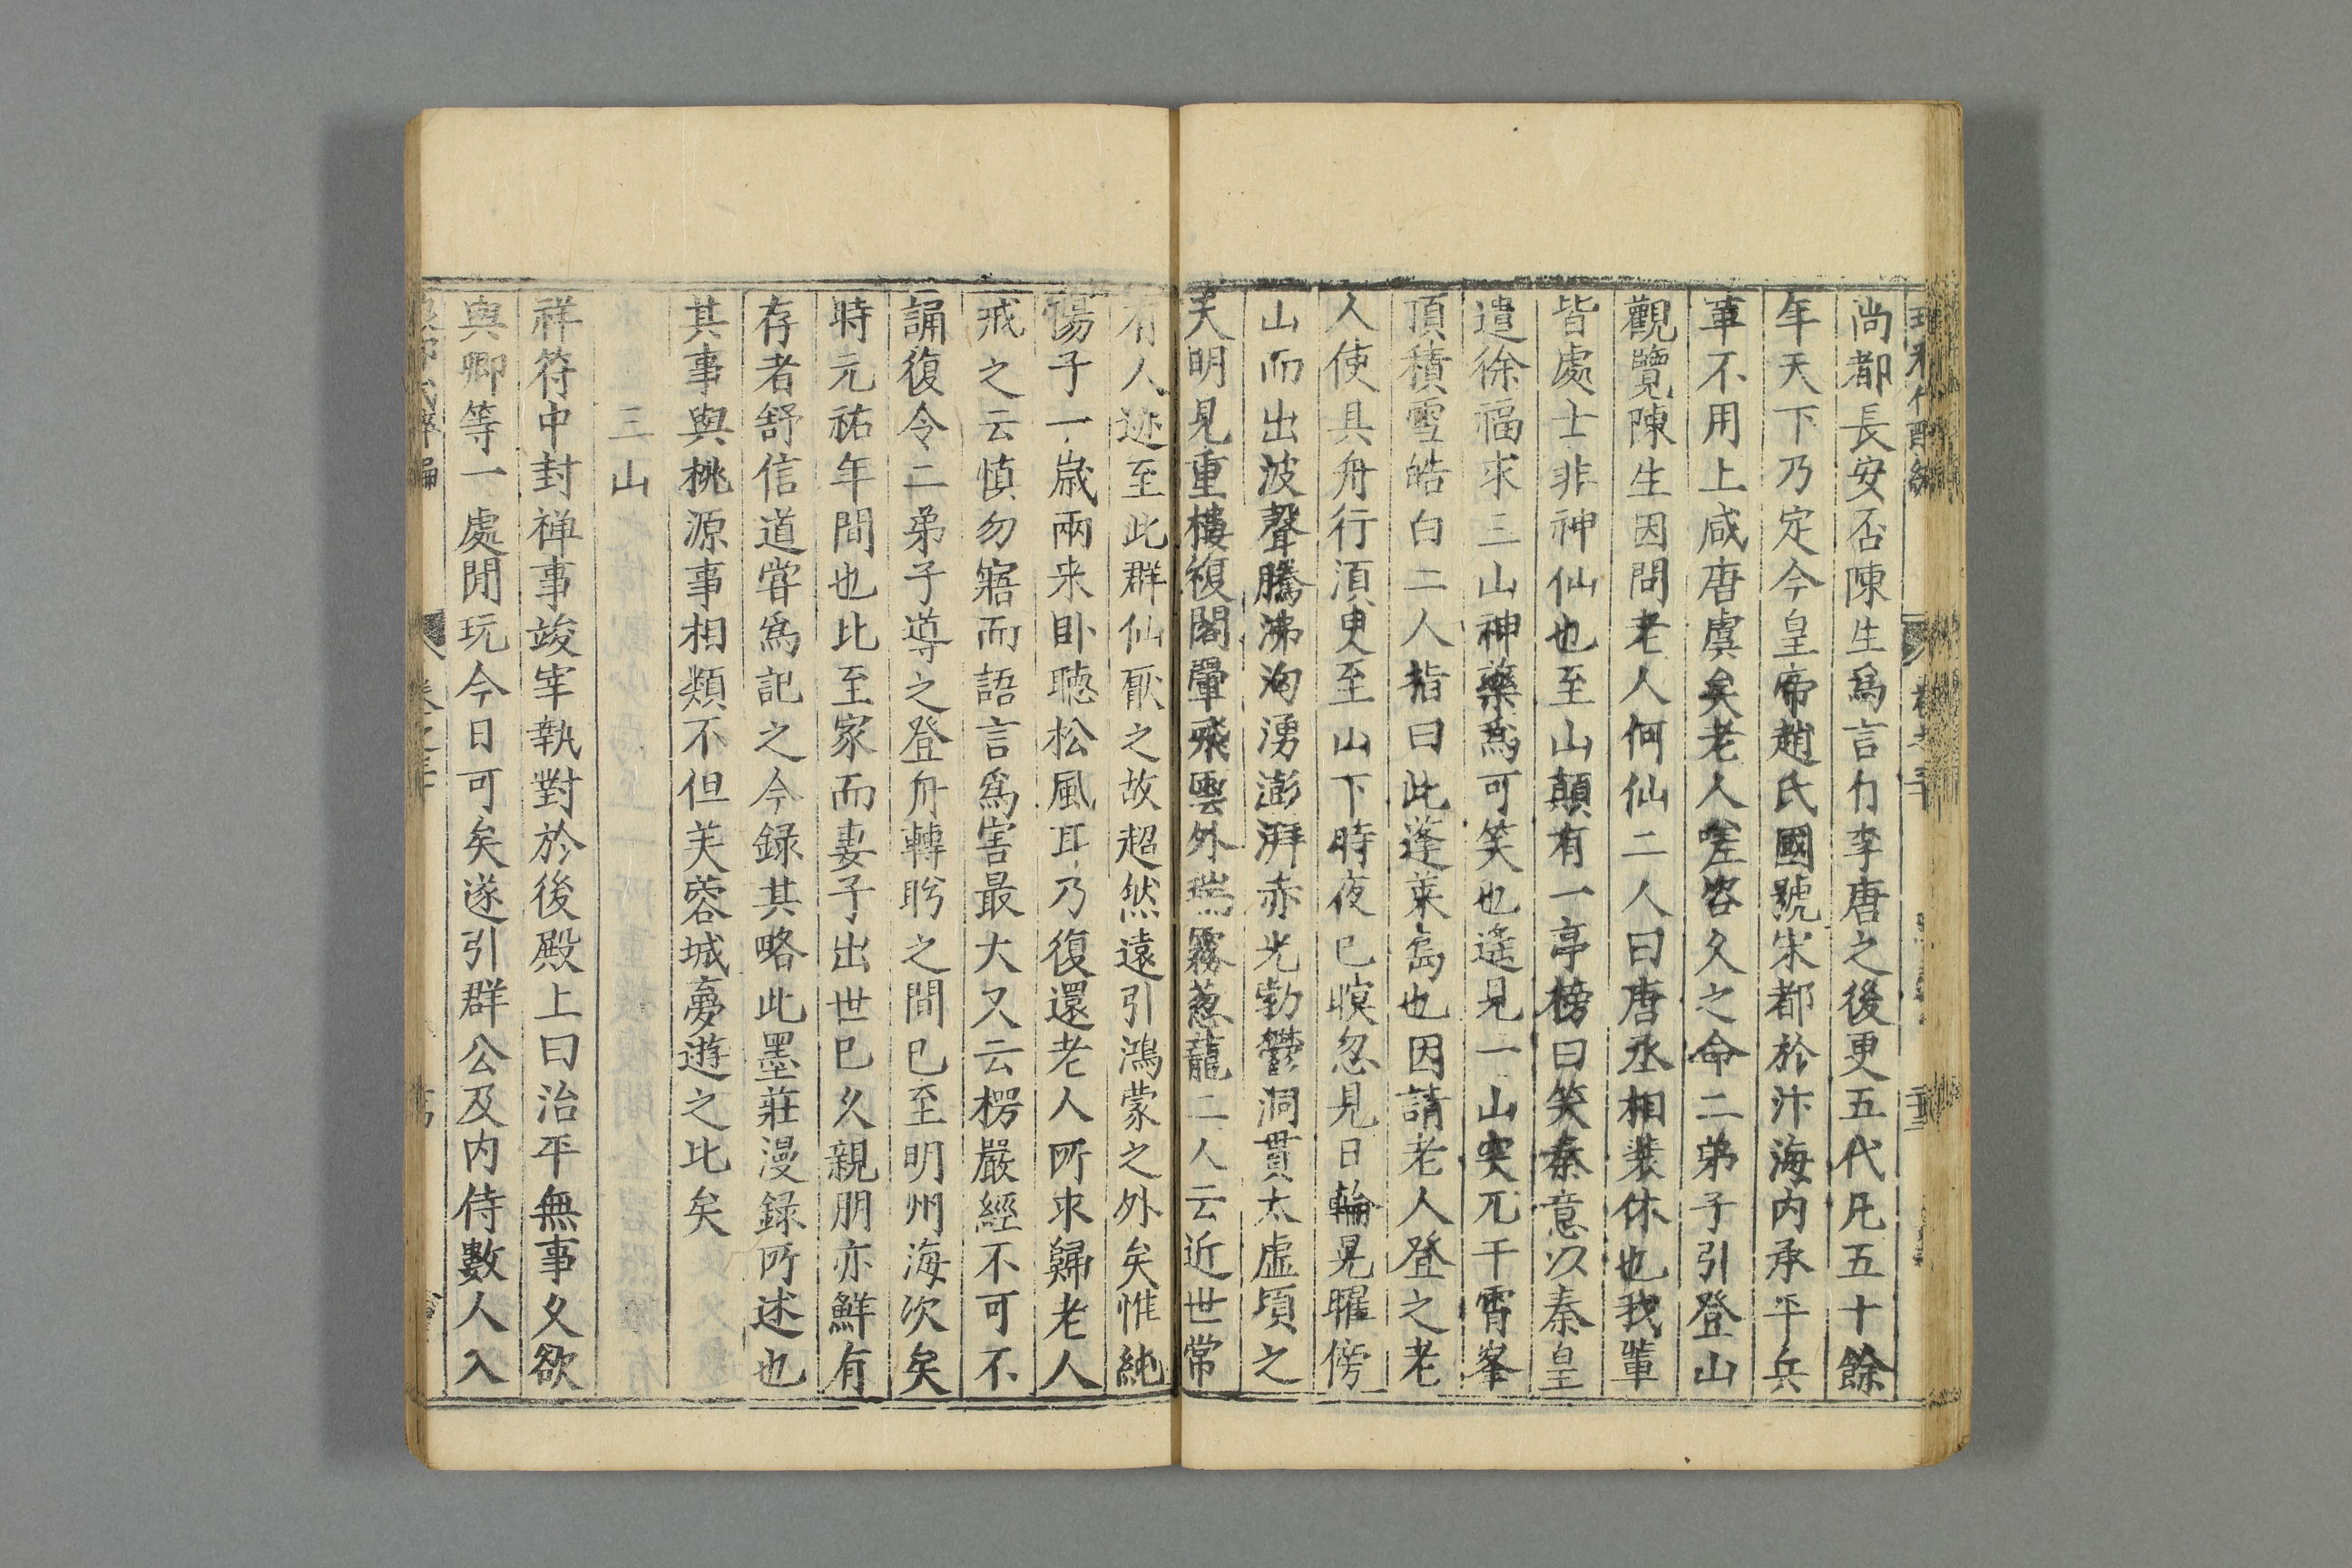 尚都長安否陳生爲言自李唐之後更五代凡五十餘
年天下乃定今皇帝趙氏國號宋都於汴海内承平兵
革不用上咸唐虞矣老人嗟咨久之命二弟子引登山
觀覽陳生因問老人何仙二人曰唐丞相裴休也我輩
皆處士非神仙也至山顛有一亭榜曰笑秦意以秦皇
遣徐福求三山神藥爲可笑也遙見一山突兀干霄峯
頂積雪皓白二人指曰此蓬萊島也因請老人登之老
人使具舟行湏臾至山下時夜已暝忽見日輪晃曜傍
山而出波聲騰沸洶湧澎湃赤光勃鬱洞貫太虛頃之
天明見重樓複閣翬飛雲外瑞霧葱蘢二人云近世常
有人迹至此群仙厭之故超然遠引鴻蒙之外矣惟純
陽子一歲兩来卧聽松風耳乃復還老人所求歸老人
戒之云慎勿寤而語言爲害最大又云楞嚴經不可不
誦復令二弟子導之登舟轉盼之間已至明州海次矣
時元祐年間也比至家而妻子出世已久親朋亦鮮有
存者舒信道甞爲記之今録其略此墨莊漫録所述也
其事與桃源事相類不但芙蓉城夢遊之比矣
三山
祥符中封禅事竣宰執對於後殿上曰治平無事久欲
與卿等一處閒玩今日可矣遂引群公及内侍數人入